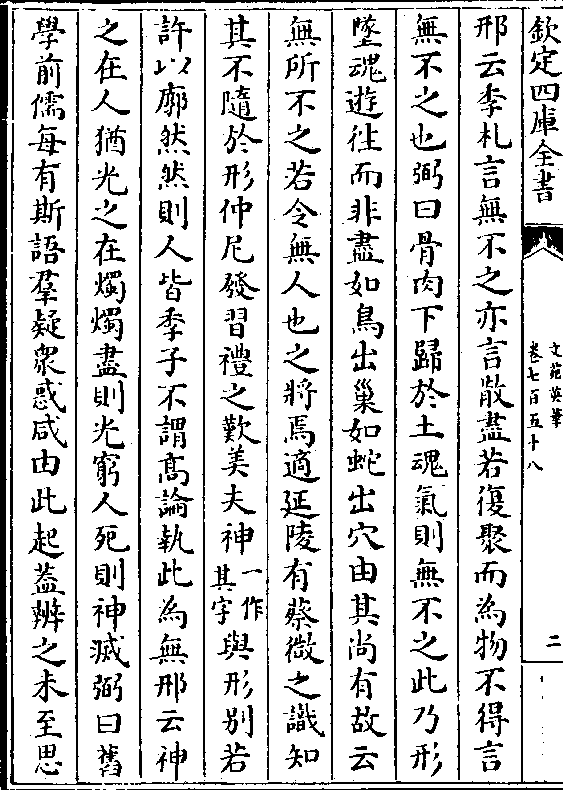 欽定四庫全書
文苑英華
卷七百五十八
二
邢云季札言無不之亦言散盡若復聚而為物不得言
無不之也弼曰骨肉下歸於土魂氣則無不之此乃形
墜魂遊徃而非盡如鳥出巢如蛇出穴由其尚有故云
無所不之若令無人也之將焉適延陵有蔡微之識知
其不隨於形仲尼發習禮之歎美夫神一作其字與形别若
許以廓然然則人皆季子不謂髙論執此為無邢云神
之在人猶光之在燭燭盡則光窮人死則神滅弼曰舊
學前儒每有斯語羣疑衆惑咸由此起葢辨之未至思